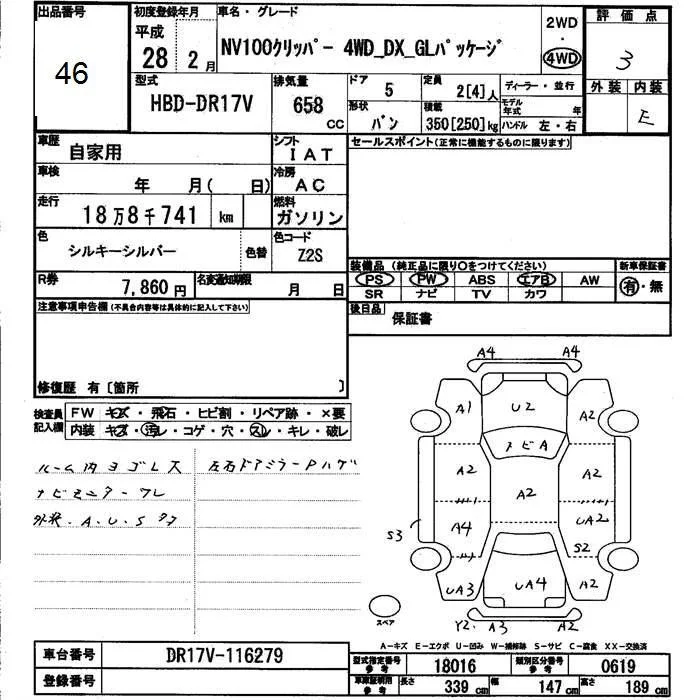 出品番号
46
初度登録年月
平成
28 2 月
車名・グレード
NV100クリッパー 4WD_DX_GLパッケージ
2WD
・
4WD
評価点
3
外装 内装
E
型式
HBD-DR17V
排気量
658
CC
ドア
5
定員
2[4]人
ディーラー・並行
形状
バン
積載
350[250]kg
モデル年式 年
ハンドル 左・右
車歴
自家用
シフト
IAT
セールスポイント(正常に機能するものに限ります)
車検
年 月( 日)
冷房
AC
走行
18万8千741 km
燃料
ガソリン
色
シルキーシルバー
色替
色コード
Z2S
装備品 (純正品に限り〇をつけてください)
新車保証書
PS PW ABS エアB AW
有・無
SR ナビ TV カワ
R券
7,860円
名変通知期限
月 日
後日品
保証書
注意事項申告欄(不具合内容等は具体的に記入して下さい)
修復歴 有〔箇所 〕
検査員記入欄
FW キズ・飛石・ヒビ割・リペア跡・×要
内装 キズ・汚レ・コゲ・穴・スレ・キレ・破レ
ルーム内ヨゴレ大 左右ドアミラーPハゲ
ナビモニターワレ
外装.A.U.S
A4 A4
A1 U2 A2
ナビA
A2 A2 A2
A4 UA2
S3 S2
UA3 UA4 A2
Y2. A3 A2
スペア
A-キズ E-エクボ U-凹み W-補修跡 S-サビ C-腐食 XX-交換済
車台番号
DR17V-116279
登録番号
型式指定番号
参考
18016
類別区分番号
参考
0619
車庫証明用
参考
長さ
339 cm
幅
147 cm
高さ
189 cm